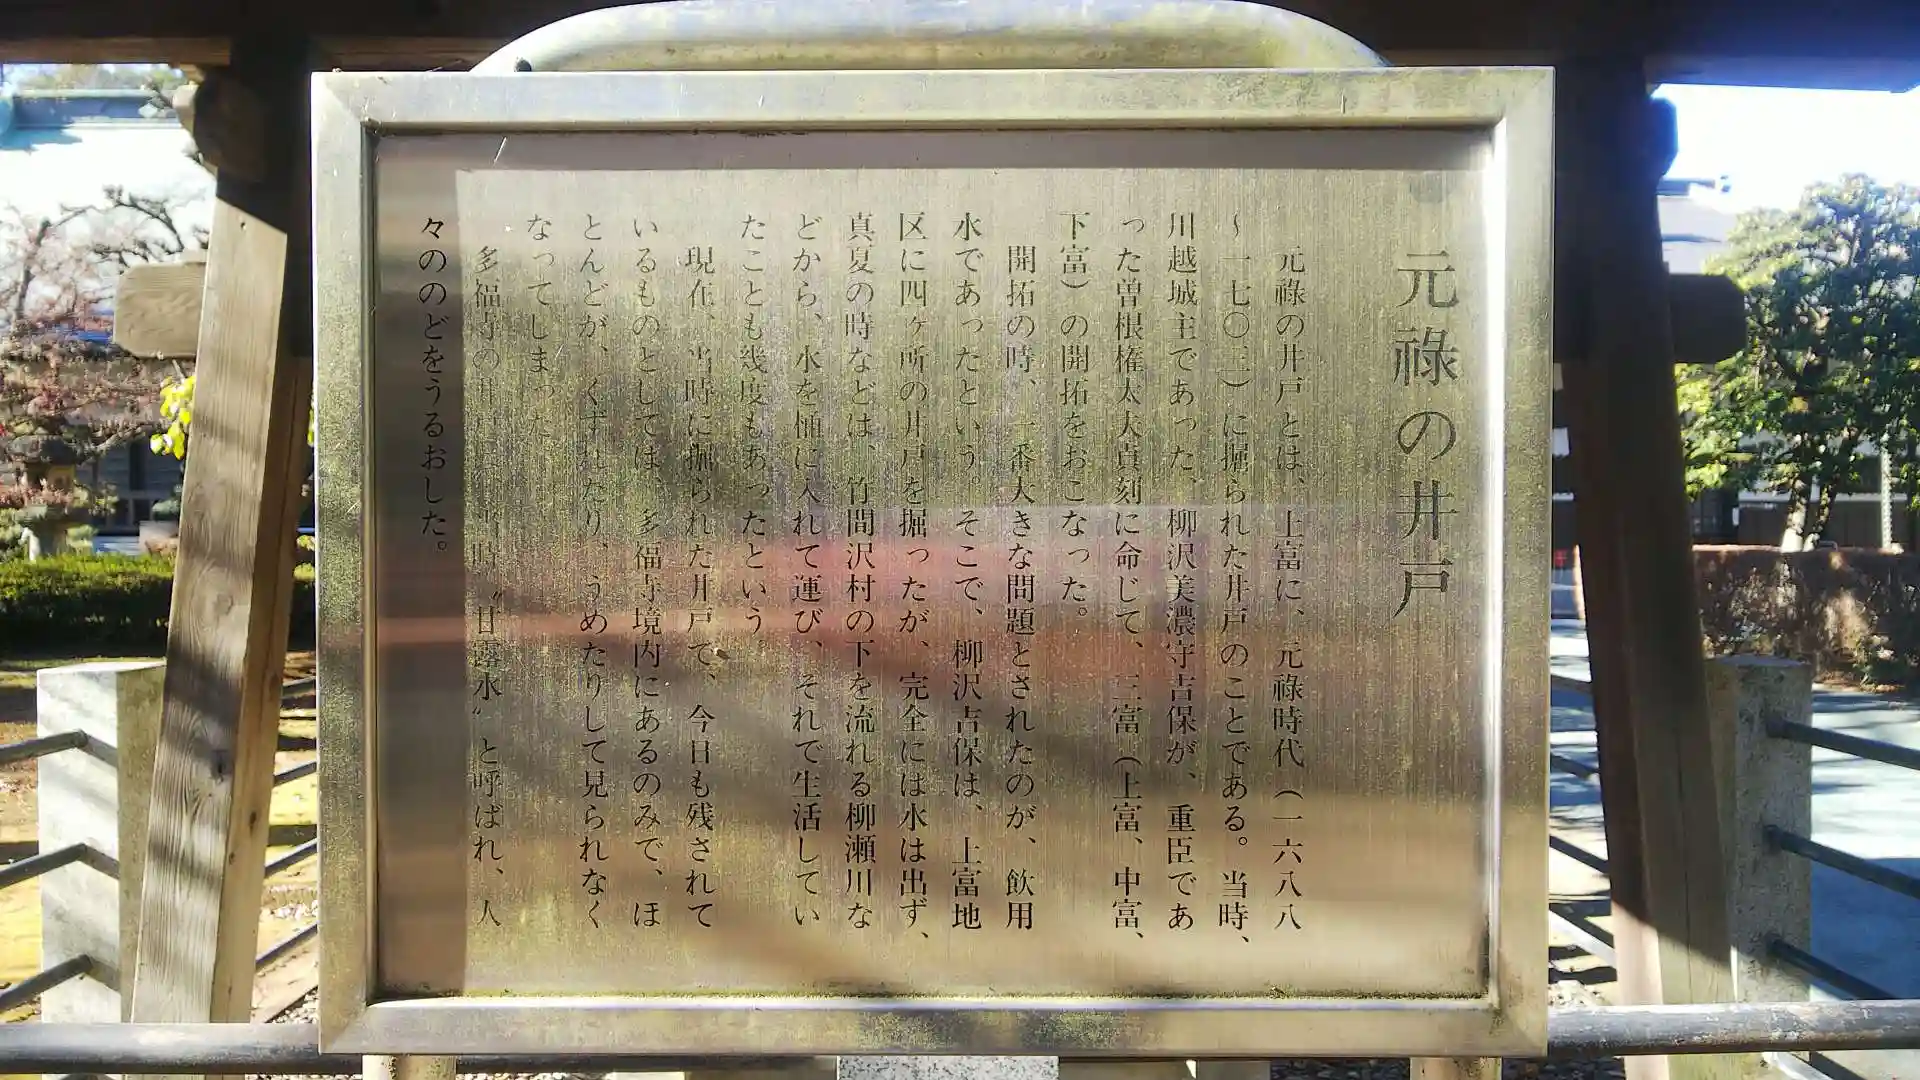 元祿の井戸
元祿の井戸とは、上富に、元祿時代（一六八八
～一七〇三）に掘られた井戸のことである。当時、
川越城主であった、柳沢美濃守吉保が、重臣であ
った曽根権太夫貞刻に命じて、三富（上富、中富、
下富）の開拓をおこなった。
開拓の時、一番大きな問題とされたのが、飲用
水であったという。そこで、柳沢吉保は、上富地
区に四ヶ所の井戸を掘ったが、完全には水は出ず、
真夏の時などは、竹間沢村の下を流れる柳瀬川な
どから、水を桶に入れて運び、それで生活してい
たことも幾度もあったという。
現在、当時に掘られた井戸で、今日も残されて
いるものとしては、多福寺境内にあるのみで、ほ
とんどが、くずれたり、うめたりして見られなく
なってしまった。
多福寺の井戸 当時〝甘露水〟と呼ばれ、人
々ののどをうるおした。